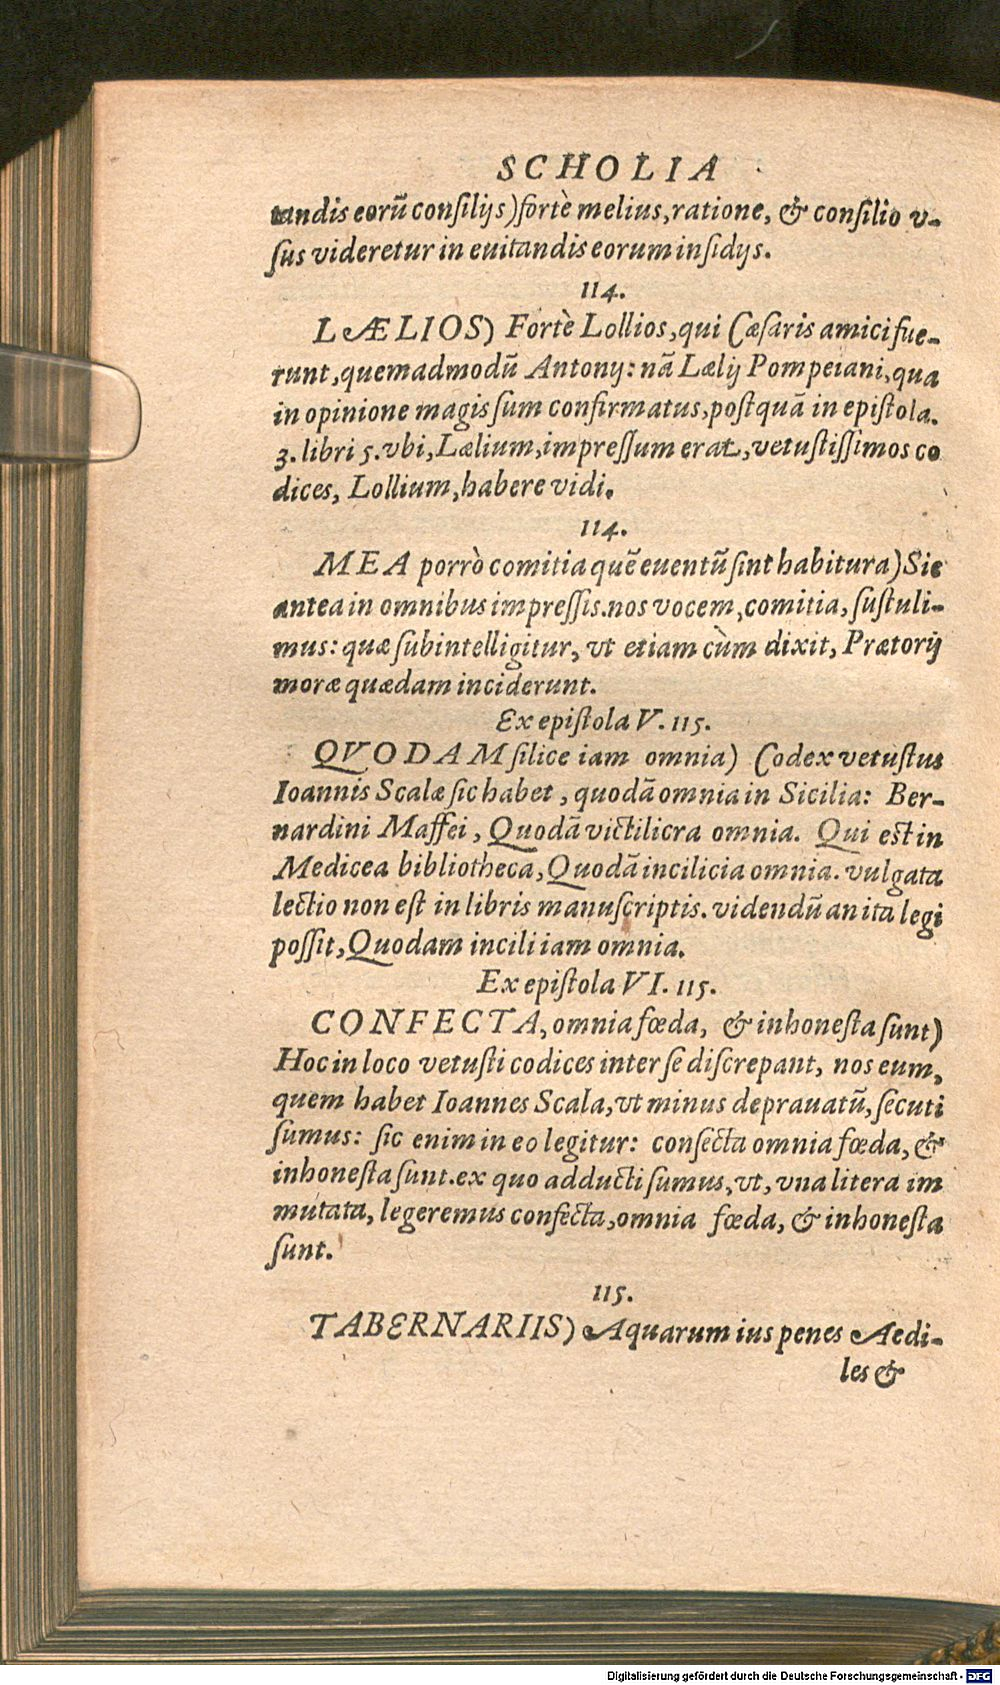 SCHOLIA
tandis eorũ consilijs) fortè melius, ratione, & consilio v-
sus videretur in euitandis eorum insidijs.
114.
LÆLIOS) Fortè Lollios, qui Cæsaris amici fue-
runt, quemadmodũ Antonij: nã Lælij Pompeiani, qua
in opinione magis sum confirmatus, postquã in epistola.
3. libri 5. vbi, Lælium, impressum erat, vetustissimos co
dices, Lollium, habere vidi.
114.
MEA porrò comitia quẽ euentũ sint habitura) Sic
antea in omnibus impressis. nos vocem, comitia, sustuli-
mus: quæ subintelligitur, vt etiam cùm dixit, Prætorij
moræ quædam inciderunt.
Ex epistola V. 115.
QVODAM silice iam omnia) Codex vetustus
Ioannis Scalæ sic habet, quodã omnia in Sicilia: Ber-
nardini Maffei, Quodã victilicra omnia. Qui est in
Medicea bibliotheca, Quodã incilicia omnia. vulgata
lectio non est in libris manuscriptis. videndũ an ita legi
possit, Quodam incili iam omnia.
Ex epistola VI. 115.
CONFECTA, omnia fœda, & inhonesta sunt)
Hoc in loco vetusti codices inter se discrepant, nos eum,
quem habet Ioannes Scala, vt minus deprauatũ, secuti
sumus: sic enim in eo legitur: consecta omnia fœda, &
inhonesta sunt. ex quo adducti sumus, vt, vna litera im
mutata, legeremus confecta, omnia fœda, & inhonesta
sunt.
115.
TABERNARIIS) Aquarum ius penes Aedi-
les &
Digitalisierung gefördert durch die Deutsche Forschungsgemeinschaft - DFG